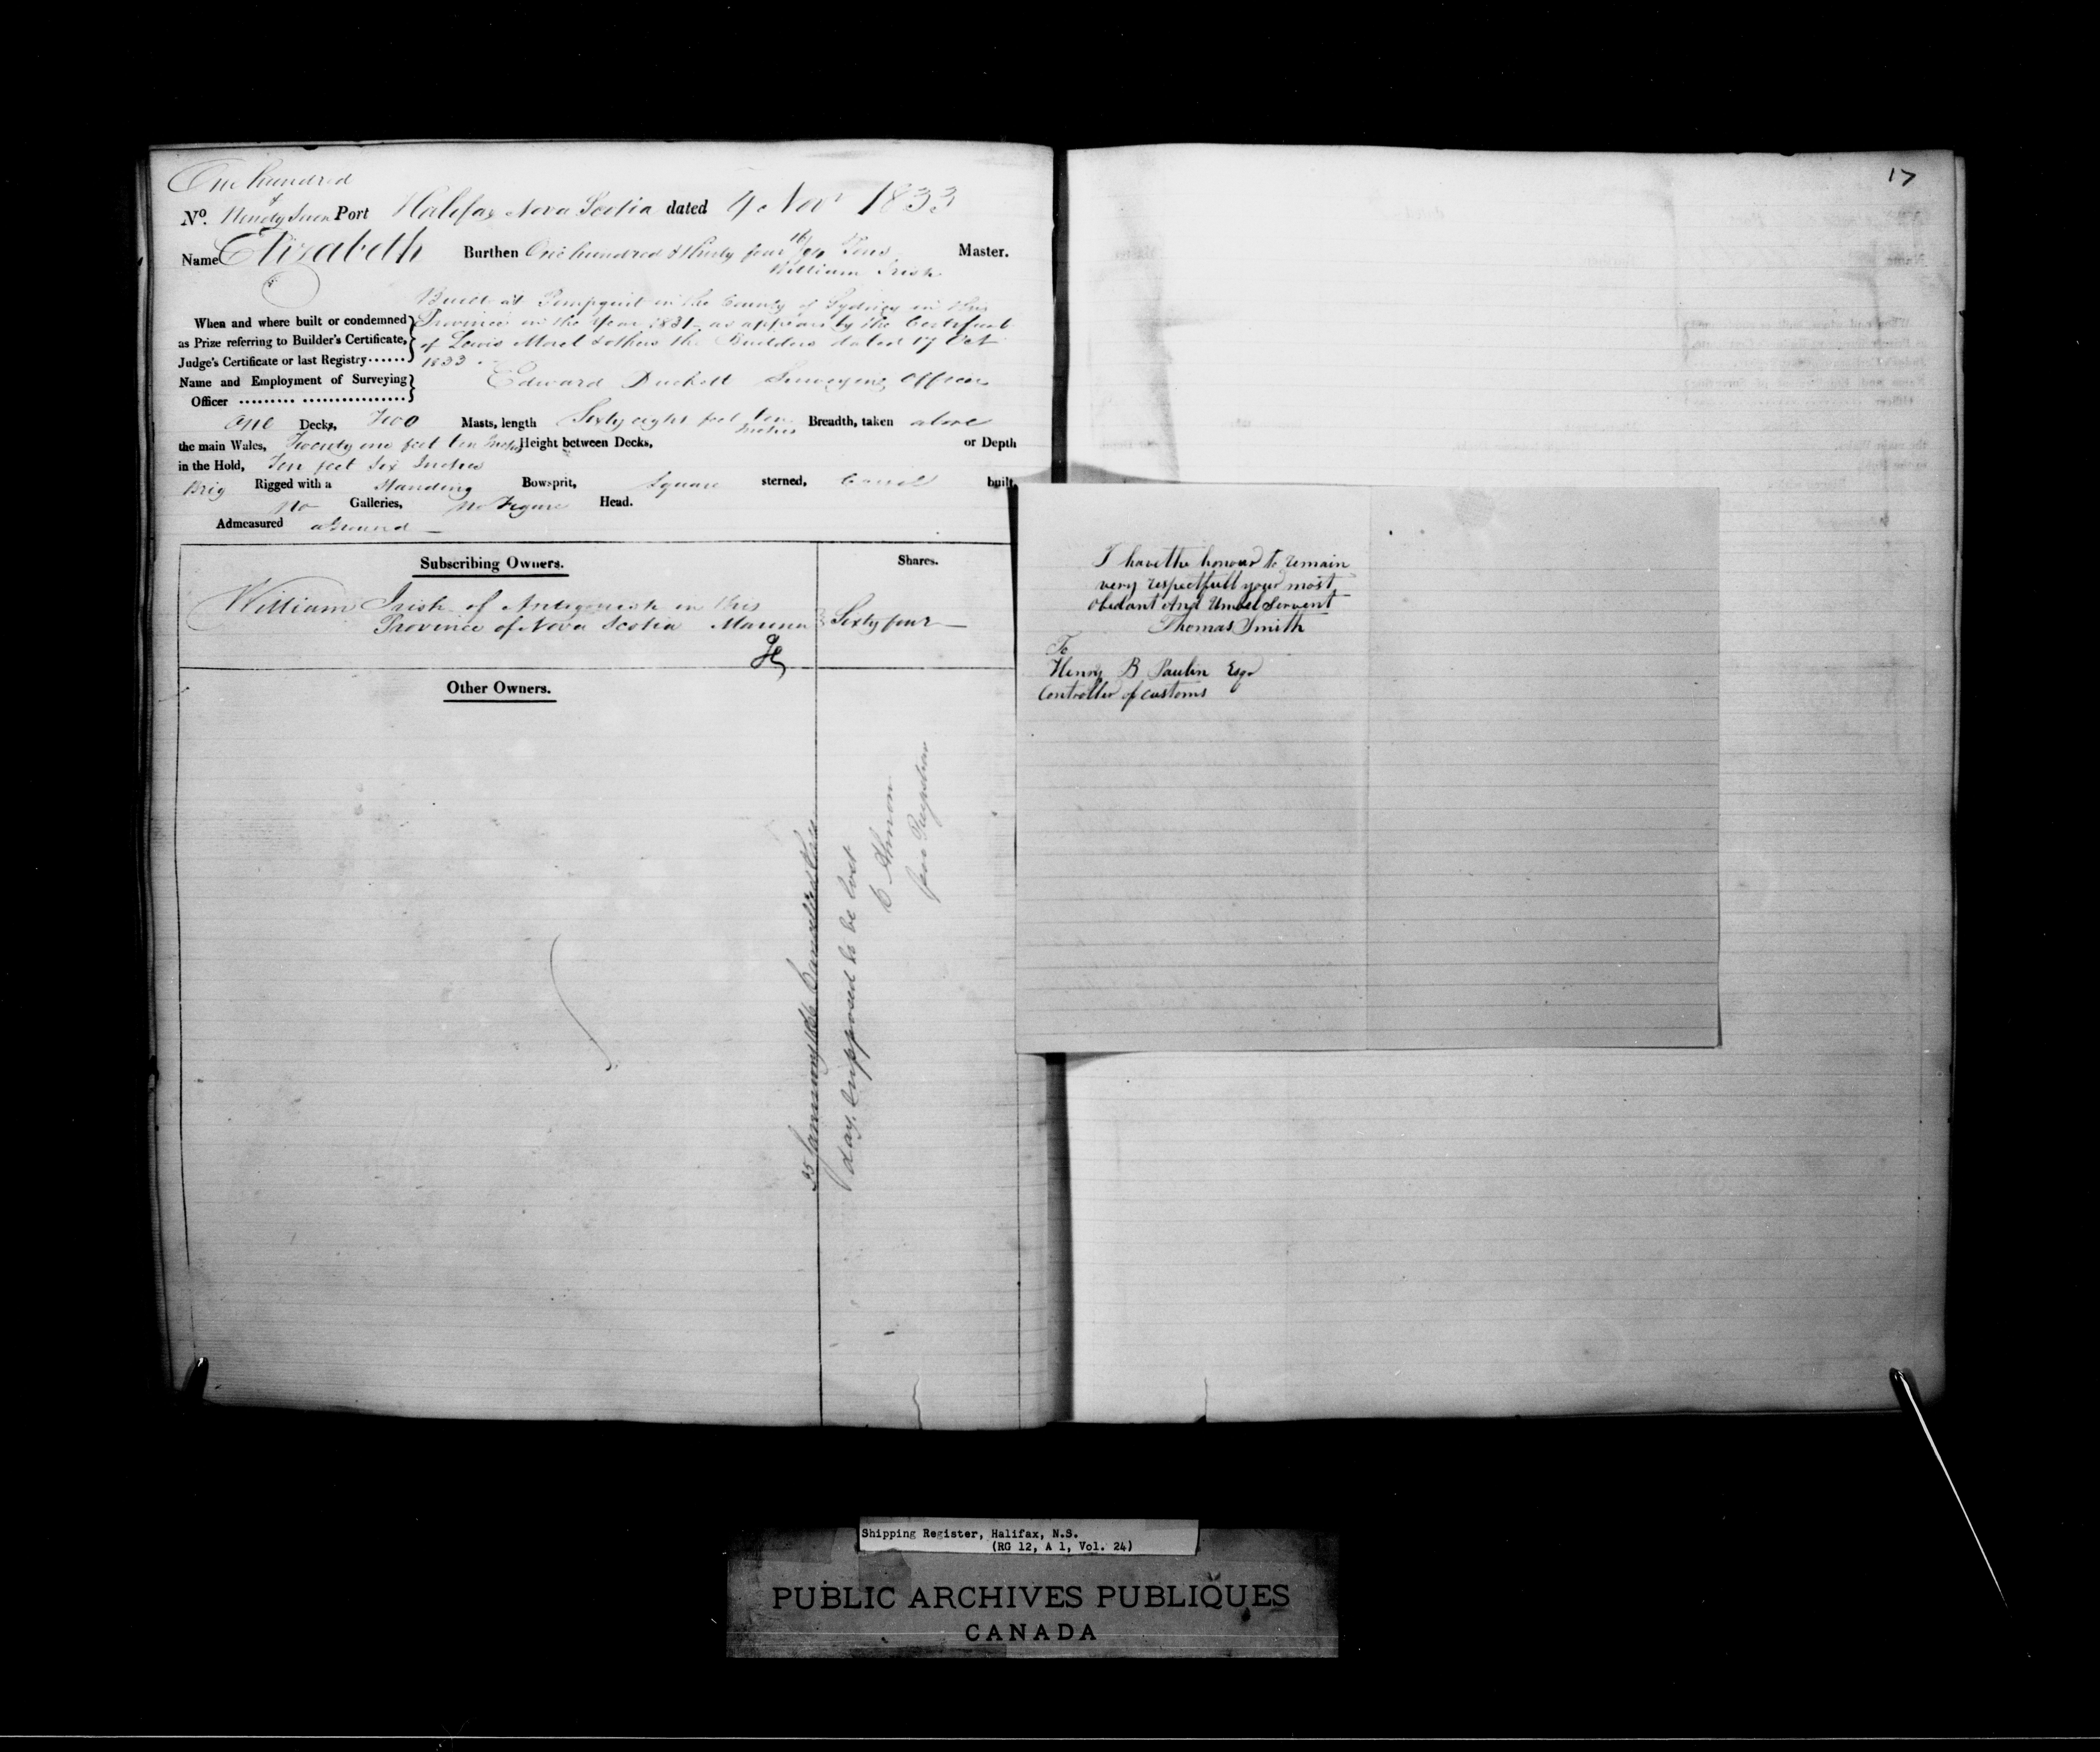 One hundred
&
No. Ninety Seven Port Halifax Nova Scotia dated 4 Novr 1833
Name Elizabeth Burthen One hundred & thirty four 16/94 Tons Master.
William Irish
Built at Pompquit in the County of Sydney in this
When and where built or condemned Province in the Year 1831 as appears by the Certificate
as Prize referring to Builder's Certificate, of Lewis Morel & others the Builders dated 17 Oct
Judge's Certificate or last Registry 1833
Name and Employment of Surveying Edward Duckett Surveying Officer
Officer
One Decks, Two Masts, length Sixty eight feet ten Inches Breadth, taken above
the main Wales, Twenty one feet ten Inches Height between Decks, or Depth
in the Hold, Ten feet Six Inches
Brig Rigged with a Standing Bowsprit, Square sterned, Carvel built,
No Galleries, No Figure Head.
Admeasured aground
Subscribing Owners. Shares.
William Irish of Antigonish in this
Province of Nova Scotia Mariner Sixty four
Other Owners.
25 January 1866 Cancelled this
day, supposed to be lost
C Almon
17
I have the honour to remain
very respectfull your most
obedant And Umbel Servent
Thomas Smith
To
Henry B Paulin Esqr
Controller of customs
Shipping Register, Halifax, N.S.
(RG 12, A 1, Vol. 24)
PUBLIC ARCHIVES PUBLIQUES
CANADA